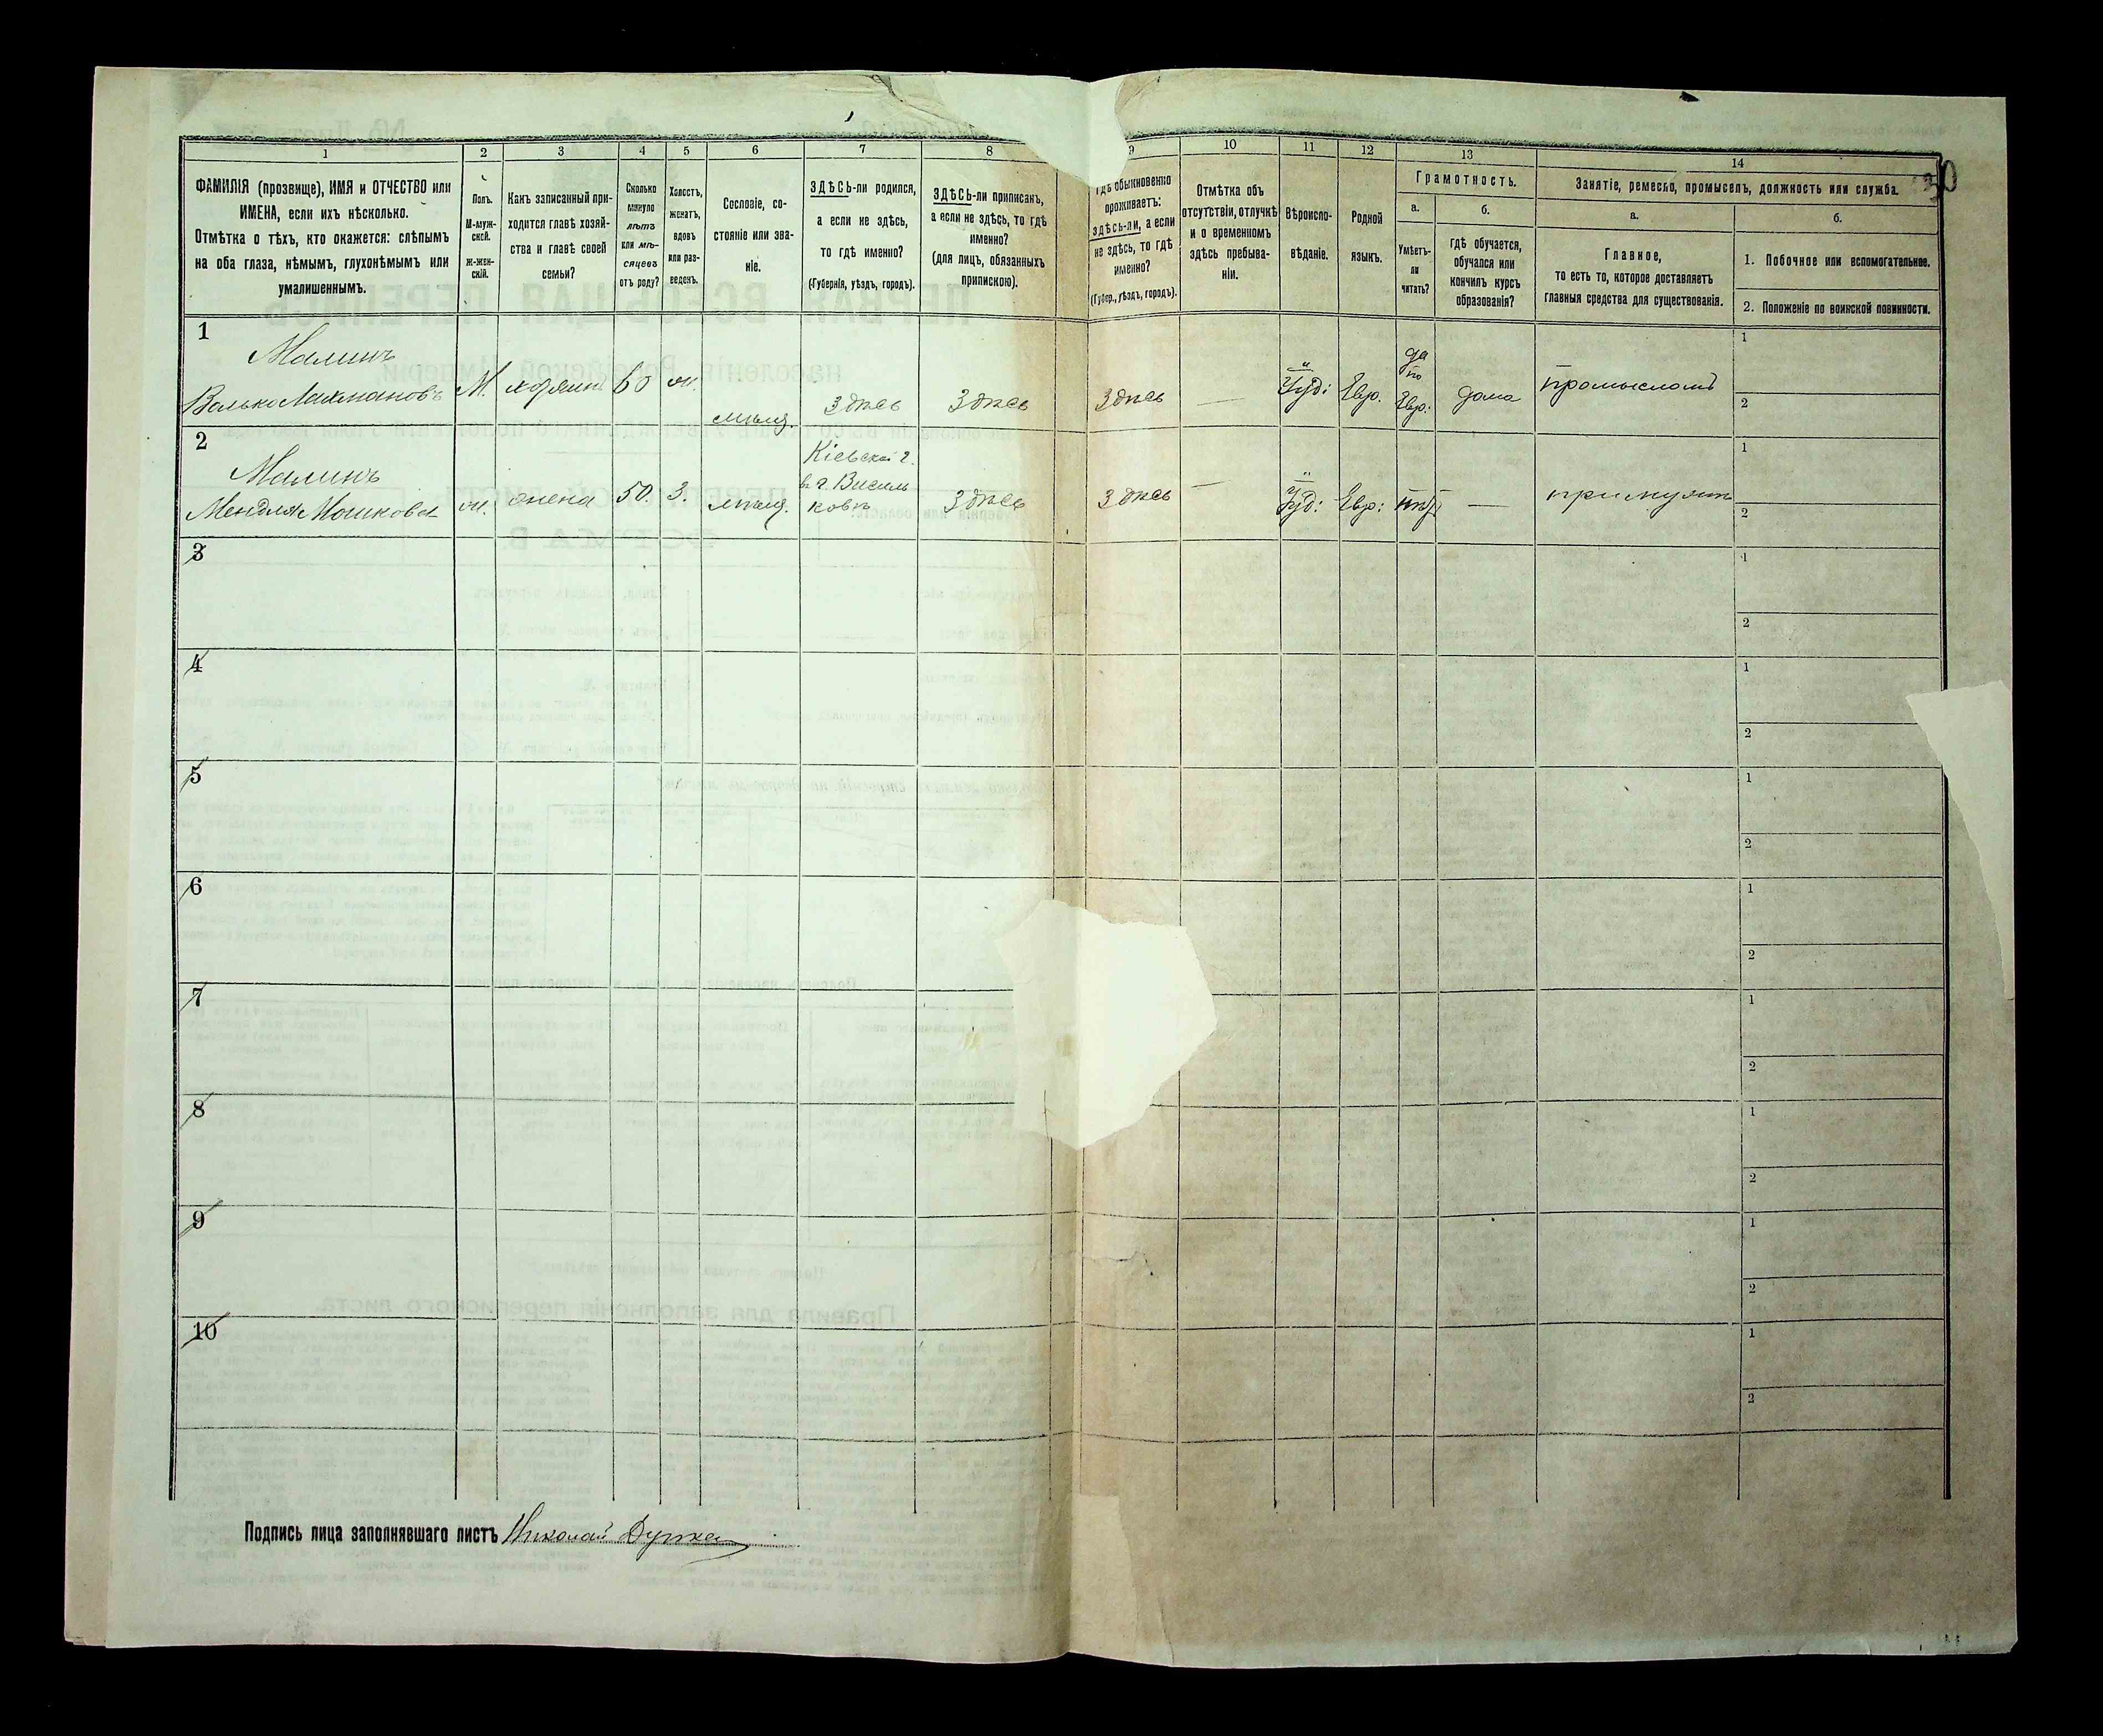 1 2 3 4 5 6 7 8 9 10 11 12 13 14
ФАМИЛІЯ (прозвище), ИМЯ и ОТЧЕСТВО или
ИМЕНА, если ихъ нѣсколько.
Отмѣтка о тѣхъ, кто окажется: слѣпымъ
на оба глаза, нѣмымъ, глухонѣмымъ или
умалишеннымъ.
Полъ.
М-муж-
ской.
ж-жен-
скій.
Какъ записанный при-
ходится главѣ хозяй-
ства и главѣ своей
семьи?
Сколько
минуло
лѣтъ
или мѣ-
сяцевъ
отъ роду?
Холостъ,
женатъ,
вдовъ
или раз-
веденъ.
Сословіе, со-
стояніе или зва-
ніе.
ЗДѢСЬ-ли родился,
а если не здѣсь,
то гдѣ именно?
(Губернія, уѣздъ, городъ).
ЗДѢСЬ-ли приписанъ,
а если не здѣсь, то гдѣ
именно?
(для лицъ, обязанныхъ
припискою).
Гдѣ обыкновенно
проживаетъ:
здѣсь-ли, а если
не здѣсь, то гдѣ
именно?
(Губер., уѣздъ, городъ).
Отмѣтка объ
отсутствіи, отлучкѣ
и о временномъ
здѣсь пребыва-
ніи.
Вѣроиспо-
вѣданіе.
Родной
языкъ.
Грамотность.
а.
Умѣетъ-
ли
читать?
б.
гдѣ обучается,
обучался или
кончилъ курсъ
образованія?
Занятіе, ремесло, промыселъ, должность или служба.
а.
Главное,
то есть то, которое доставляетъ
главныя средства для существованія.
б.
1. Побочное или вспомогательное.
2. Положеніе по воинской повинности.
30
1
Малинъ
М. 60 ж. мѣщ. Здѣсь Здѣсь Здѣсь — Іуд: Евр. да по Евр: дома
1
2
2
Малинъ
ж. жена 50. З. мѣщ. Кіевской г.
въ г. Василь
ковѣ Здѣсь Здѣсь — Іуд: Евр: нѣтъ —
1
2
3
1
2
4
1
2
5
1
2
6
1
2
7
1
2
8
1
2
9
1
2
10
1
2
Подпись лица заполнявшаго листъ Николай